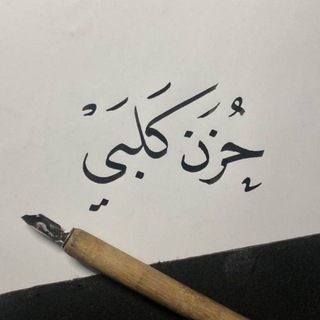 حُزَن كَلبَيْ